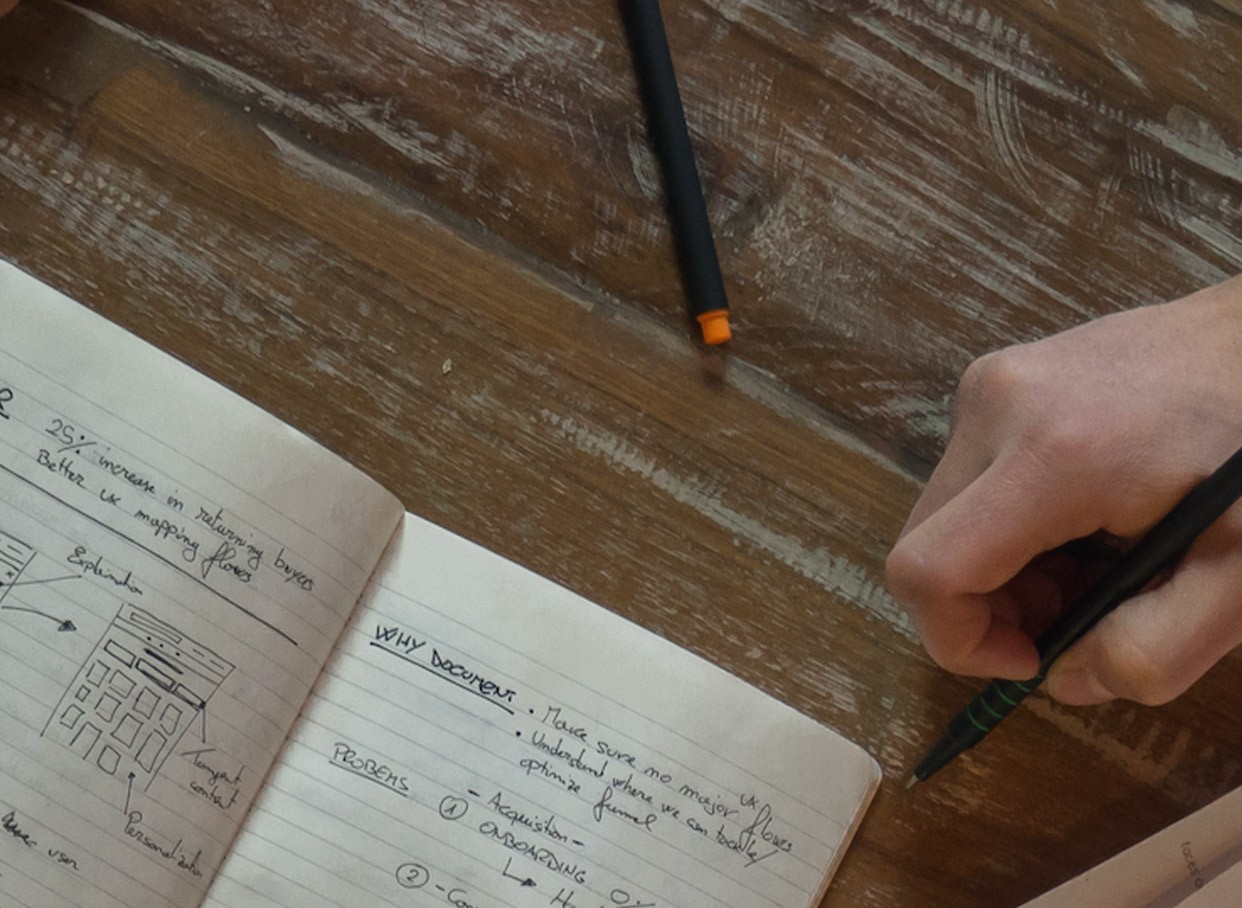 25% increase in returning buyers
Better UX mapping flows
Explanation
Tangent
content
Personalization
user
WHY DOCUMENT
• Make sure no major UX flows
• Understand where we can tackle/
optimize funnel
PROBEMS
- Acquisition -
① ONBOARDING
②